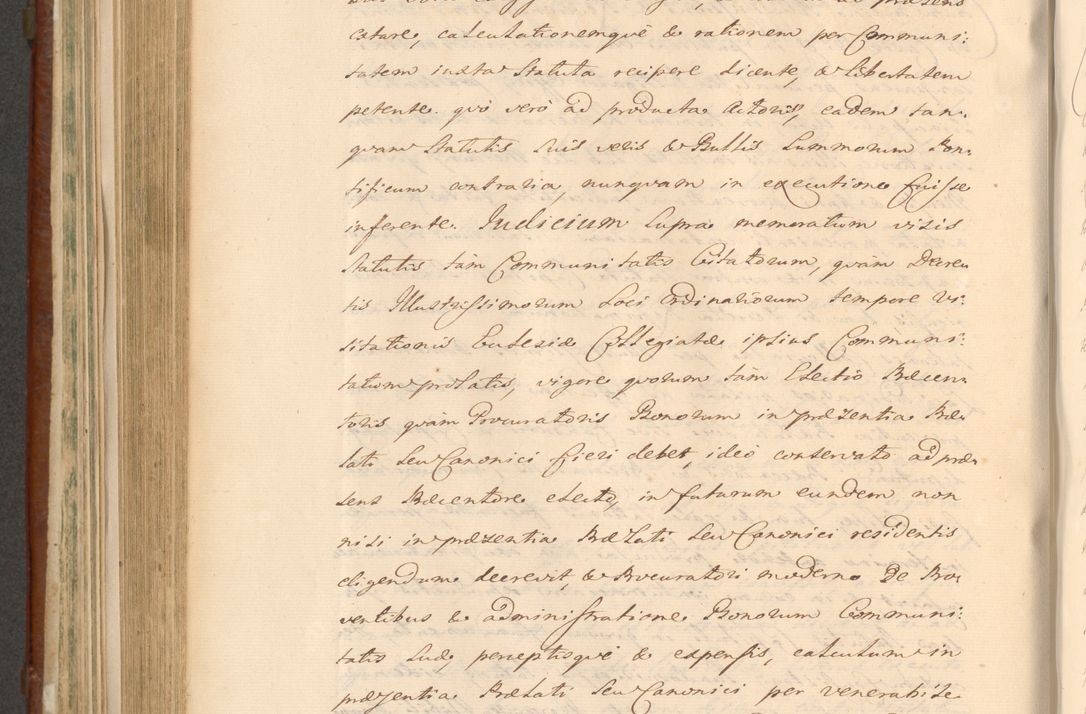 catare, calculationemque & rationem per Communi:
tatem iuxta Statuta recipere dicente, & libertatem
petente. qvò verò ad producta Actoris, eadem tan:
qvam Statutis suis veris & Bullis Summorum Pon:
tificum contraria, nunqvam in executione fuisse
inferente. Iudicium supra memoratum visis
Statutis tàm Communitatis Citatorum, qvàm Decre:
tis Illustrissimorum Loci Ordinariorum tempore Vi:
sitationis Ecclesiæ Collegiatæ ipsius Communi:
tatum prolatis, vigore qvorum tàm Electio Præcen:
toris qvàm Procuratoris Bonorum in præsentia Præ:
lati seu Canonici fieri debet, ideò conservato ad præ:
sens Præcentore electo, in futurum eundem non
nisi in præsentia Prælati seu Canonici residentis
eligendum decrevit, & Procuratori moderno De Pro:
ventibus & administratione Bonorum Communi:
tatis suæ, perceptisqvè & expensis, calculum in
præsentia Prælati seu Canonici per venerabile